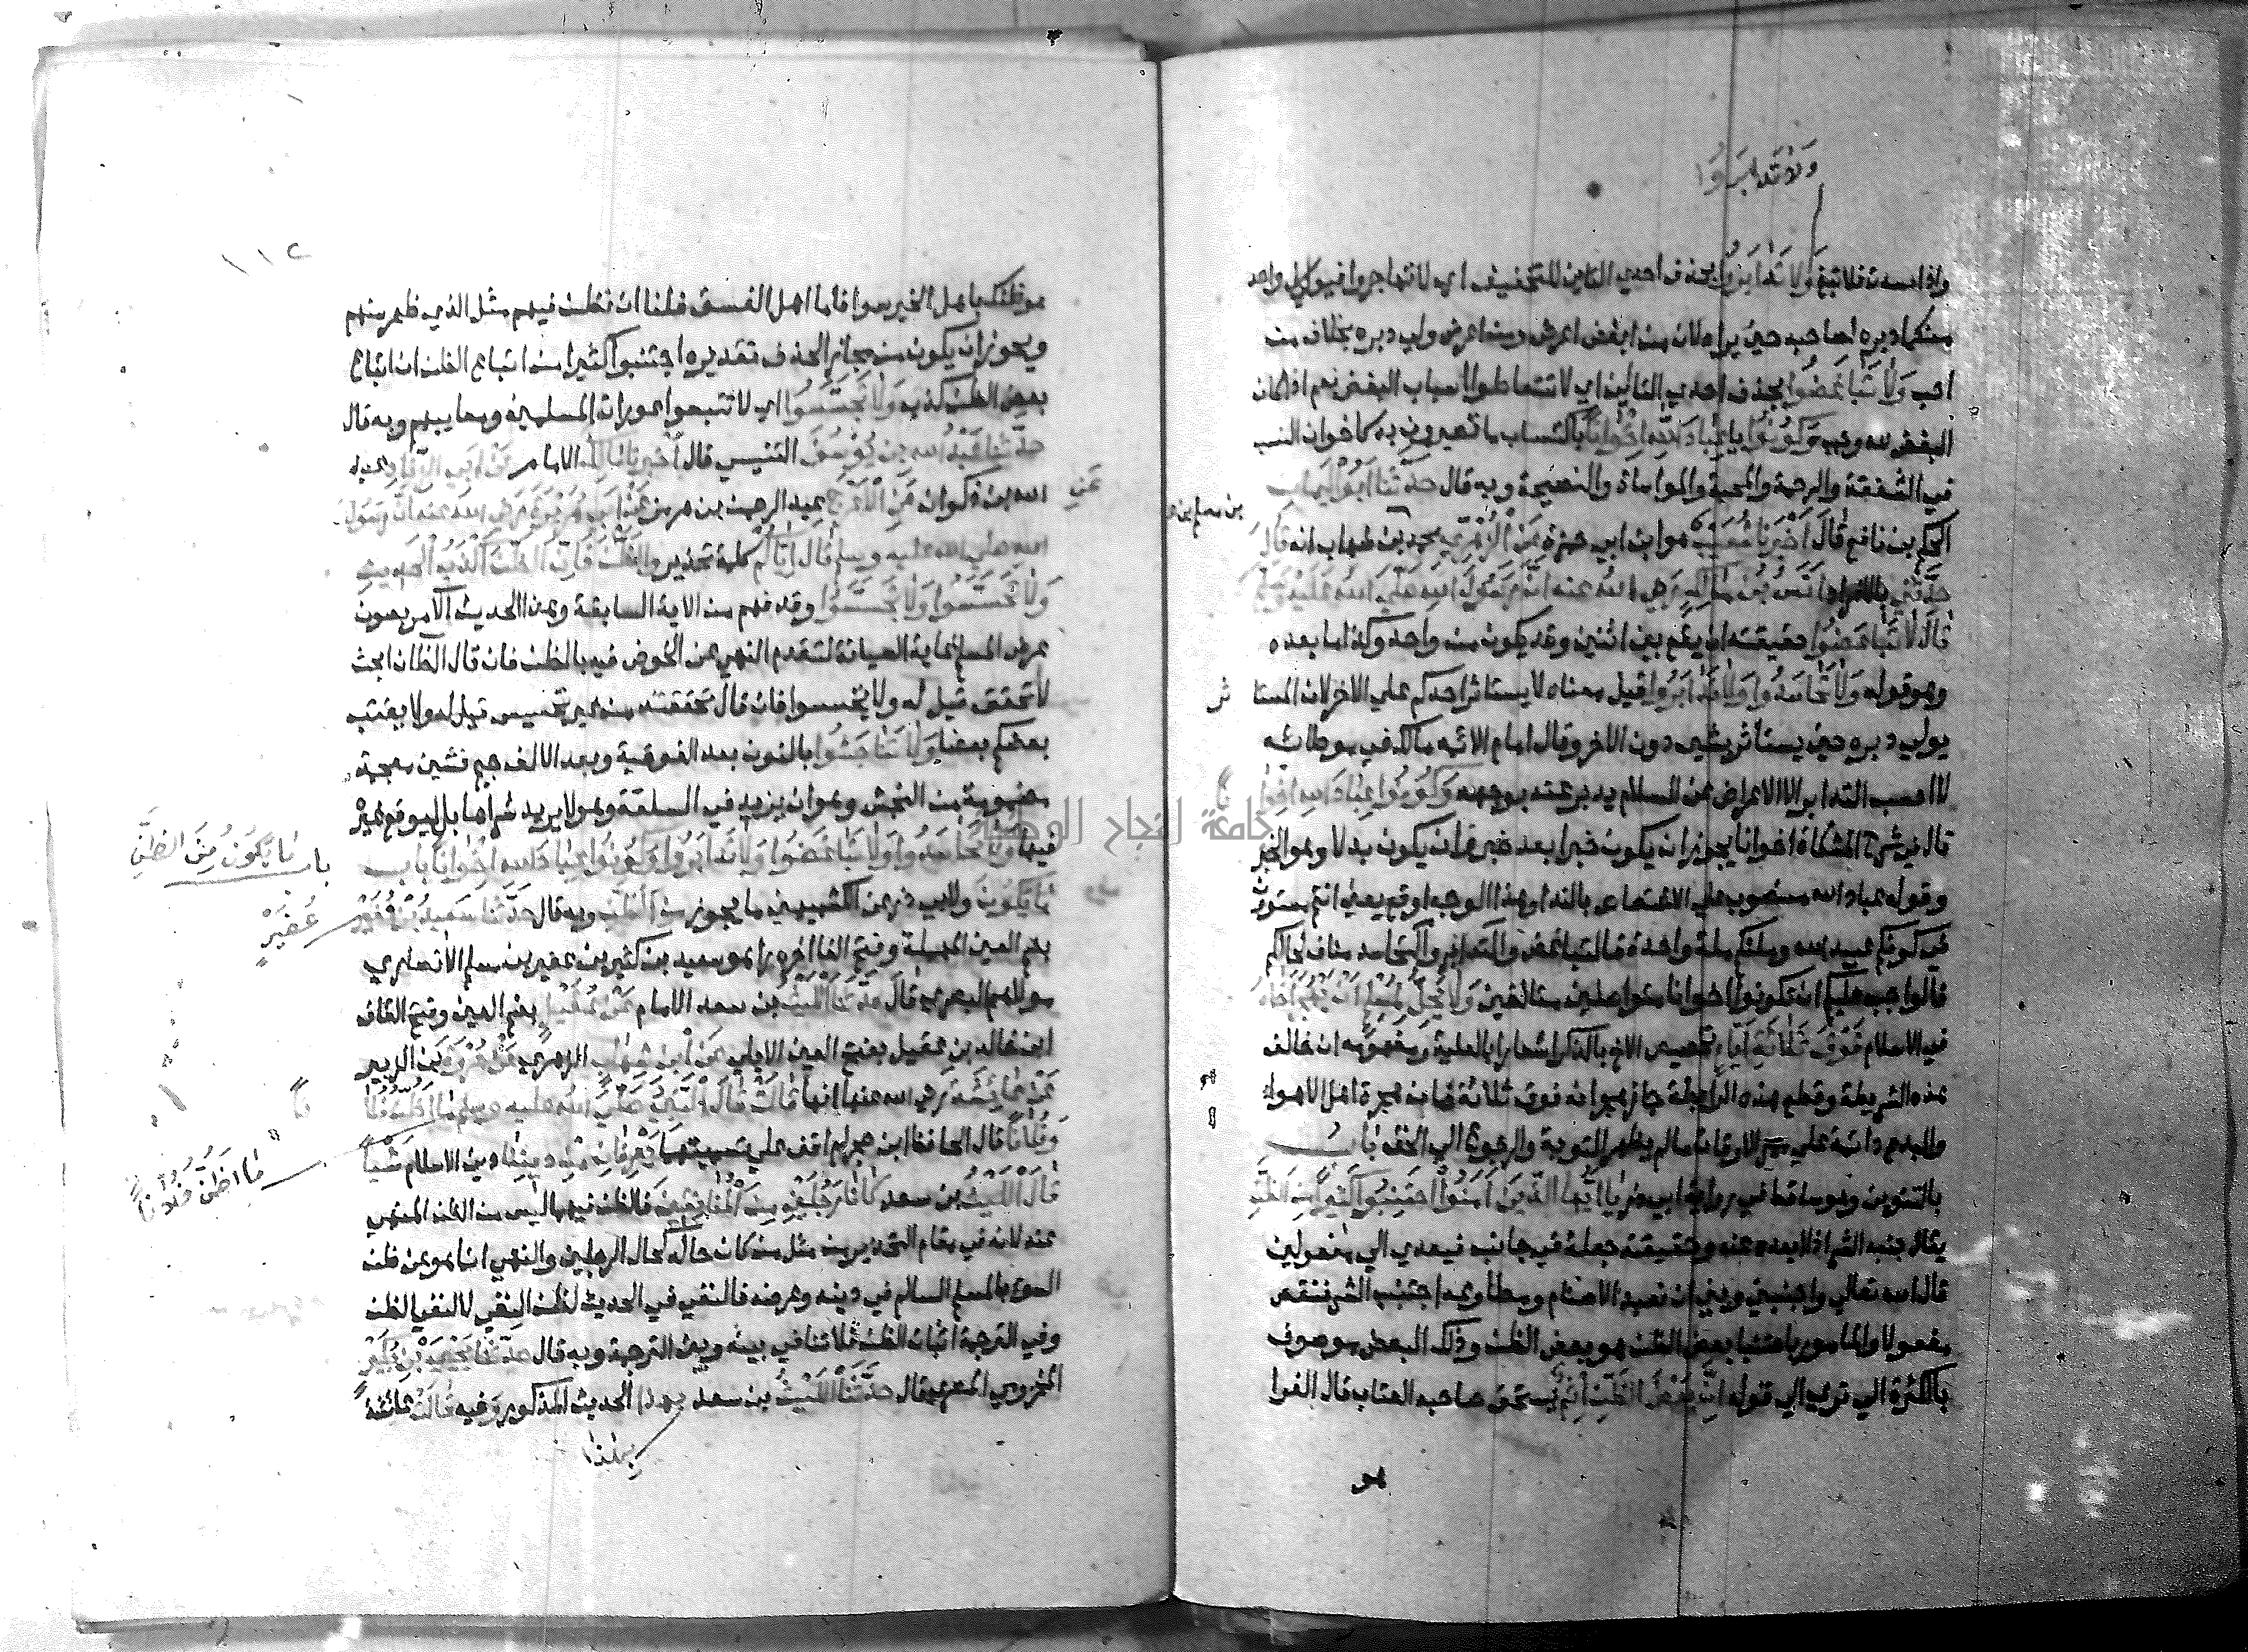 ولا تدابروا
واذا حسدت فلا تبغ ولا تدابروا بحذف احدي التاءين للتخفيف اي لا تهاجروا فيولي كل واحد
منكما دبره لصاحبه حين يراه لان من ابغض اعرض ومن اعرض ولي دبره بخلاف من
احب ولا تباغضوا بحذف احدي التاءين اي لا تتعاطوا اسباب البغض نعم اذا كان
البغض لله وجب وكونوا يا عباد الله اخوانا باكتساب ما تصيرون به كاخوان النسب
في الشفقة والرحمة والمحبة والمواساة والنصيحة وبه قال حدثنا ابو اليمان
الحكم بن نافع قال اخبرنا شعيب هو ابن ابي حمزة عن الزهري محمد بن شهاب انه قال
بن مسلم بن
حدثني بالافراد انس بن مالك رضي الله عنه ان رسول الله صلي الله عليه وسلم
قال لا تباغضوا حقيقته ان يقع بين اثنين وقد يكون من واحد وكذا ما بعده
وهو قوله ولا تحاسدوا ولا تدابروا قيل معناه لا يستاثر احدكم علي الاخر لان المستا
ثر
يولي دبره حين يستاثر بشي دون الاخر وقال امام الائمه مالك في موطائه
لا احسب التدابر الا الاعراض عن السلام يدبر عنه بوجهه وكونوا عباد الله اخوا
نا
قال في شرح المشكاة اخوانا يجوز ان يكون خبرا بعد خبر وان يكون بدلا وهو الخبر
وقوله عباد الله منصوب علي الاختصاص بالنداء وهذا الوجه اوقع يعني انتم مستوون
في كونكم عبيد الله وملتكم ملة واحدة فالتباغض والتدابر والتحاسد مناف لحالكم
فالواجب عليكم ان تكونوا اخوانا متواصلين متالفين ولا يحل لمسلم ان يهجر اخاه
في الاسلام فوق ثلاثة ايام تخصيص الاخ بالذكر اشعار بالعلية ومفهومه ان خالف
هذه الشريطة وقطع هذه الرابطة جاز هجرانه فوق ثلاثة فان هجرة اهل الاهواء
والبدع دائمة علي مر الاوقات ما لم يظهر التوبة والرجوع الي الحق باب
بالتنوين وهو ساقط في رواية ابي ذر يا ايها الذين امنوا اجتنبوا كثيرا من الظن
يقال جنبه الشر اذا ابعده عنه وحقيقته جعله في جانب فيعدي الي مفعولين
قال الله تعالي واجنبني وبني ان نعبد الاصنام ومطاوعه اجتنب الشر فنقص
مفعولا والمامور باجتنابه بعض الظن هو بعض الظن وذلك البعض موصوف
بالكثرة الي تري الي قوله ان بعض الظن اثم يستحق صاحبه العقاب قال الفرا
هو
١١٢
هو ظنك باهل الخير سوا فاما اهل الفسق فلنا ان نظن فيهم مثل الذي ظهر منهم
ويجوز ان يكون من مجاز الحذف تقديره اجتنبوا كثيرا من اتباع الظن ان اتباع
بعض الظن كذب ولا تجسسوا اي لا تتبعوا عورات المسلمين ومعايبهم وبه قال
حدثنا عبد الله بن يوسف التنيسي قال اخبرنا مالك الامام عن ابي الزناد عبد
الله بن ذكوان عن الاعرج عبد الرحمن بن هرمز عن ابي هريرة رضي الله عنه ان رسول
عن
الله صلي الله عليه وسلم قال اياكم كلمة تحذير والظن فان الظن اكذب الحديث
ولا تحسسوا ولا تجسسوا وقد فهم من الاية السابقة وهذا الحديث الامر بصون
عرض المسلم غاية الصيانة لتقدم النهي عن الخوض فيه بالظن فان قال الظان ابحث
لا تحقق قيل له ولا تجسسوا فان قال تحققت من غير تجسس قيل له ولا يغتب
بعضكم بعضا ولا تناجشوا بالنون بعد الفوقية وبعد الالف جيم فشين معجمة
مضمومة من النجش وهو ان يزيد في السلعة وهو لا يريد شراها بل ليوقع غيره
فيها ولا تحاسدوا ولا تباغضوا ولا تدابروا وكونوا عباد الله اخوانا باب
باب ما يكون من الظن
ما يكون ولابي ذر عن الكشميهني ما يجوز من الظن وبه قال حدثنا سعيد بن عفير
عفير
بضم العين المهملة وفتح الفا اخره را هو سعيد بن كثير بن عفير بن مسلم الانصاري
مولاهم البصري قال حدثنا الليث بن سعد الامام عن عقيل بضم العين وفتح القاف
ابن خالد بن عقيل بفتح العين الايلي عن ابن شهاب الزهري عن عروة بن الزبير
عن عائشة رضي الله عنها انها قالت قال النبي صلي الله عليه وسلم ما اظن فلا
نا
ما اظن فلانا
وفلانا قال الحافظ ابن حجر لم اقف علي تسميتهما يعرفان من ديننا دين الاسلام شيا
قال الليث بن سعد كانا رجلين من المنافقين فالظن فيهما ليس من الظن المنهي
عنه لانه في مقام التحذير من مثل من كان حاله كحال الرجلين والنهي انما هو عن ظن
السوء بالمسلم السالم في دينه وعرضه فالنفي في الحديث لظن النفي لا لنفي الظن
وفي الترجمة اثبات الظن فلا تنافي بينه وبين الترجمة وبه قال حدثنا يحيي بن بكير
المخزومي المصري قال حدثنا الليث بن سعد بهذا الحديث المذكور وفيه قالت عائشة
بهذا